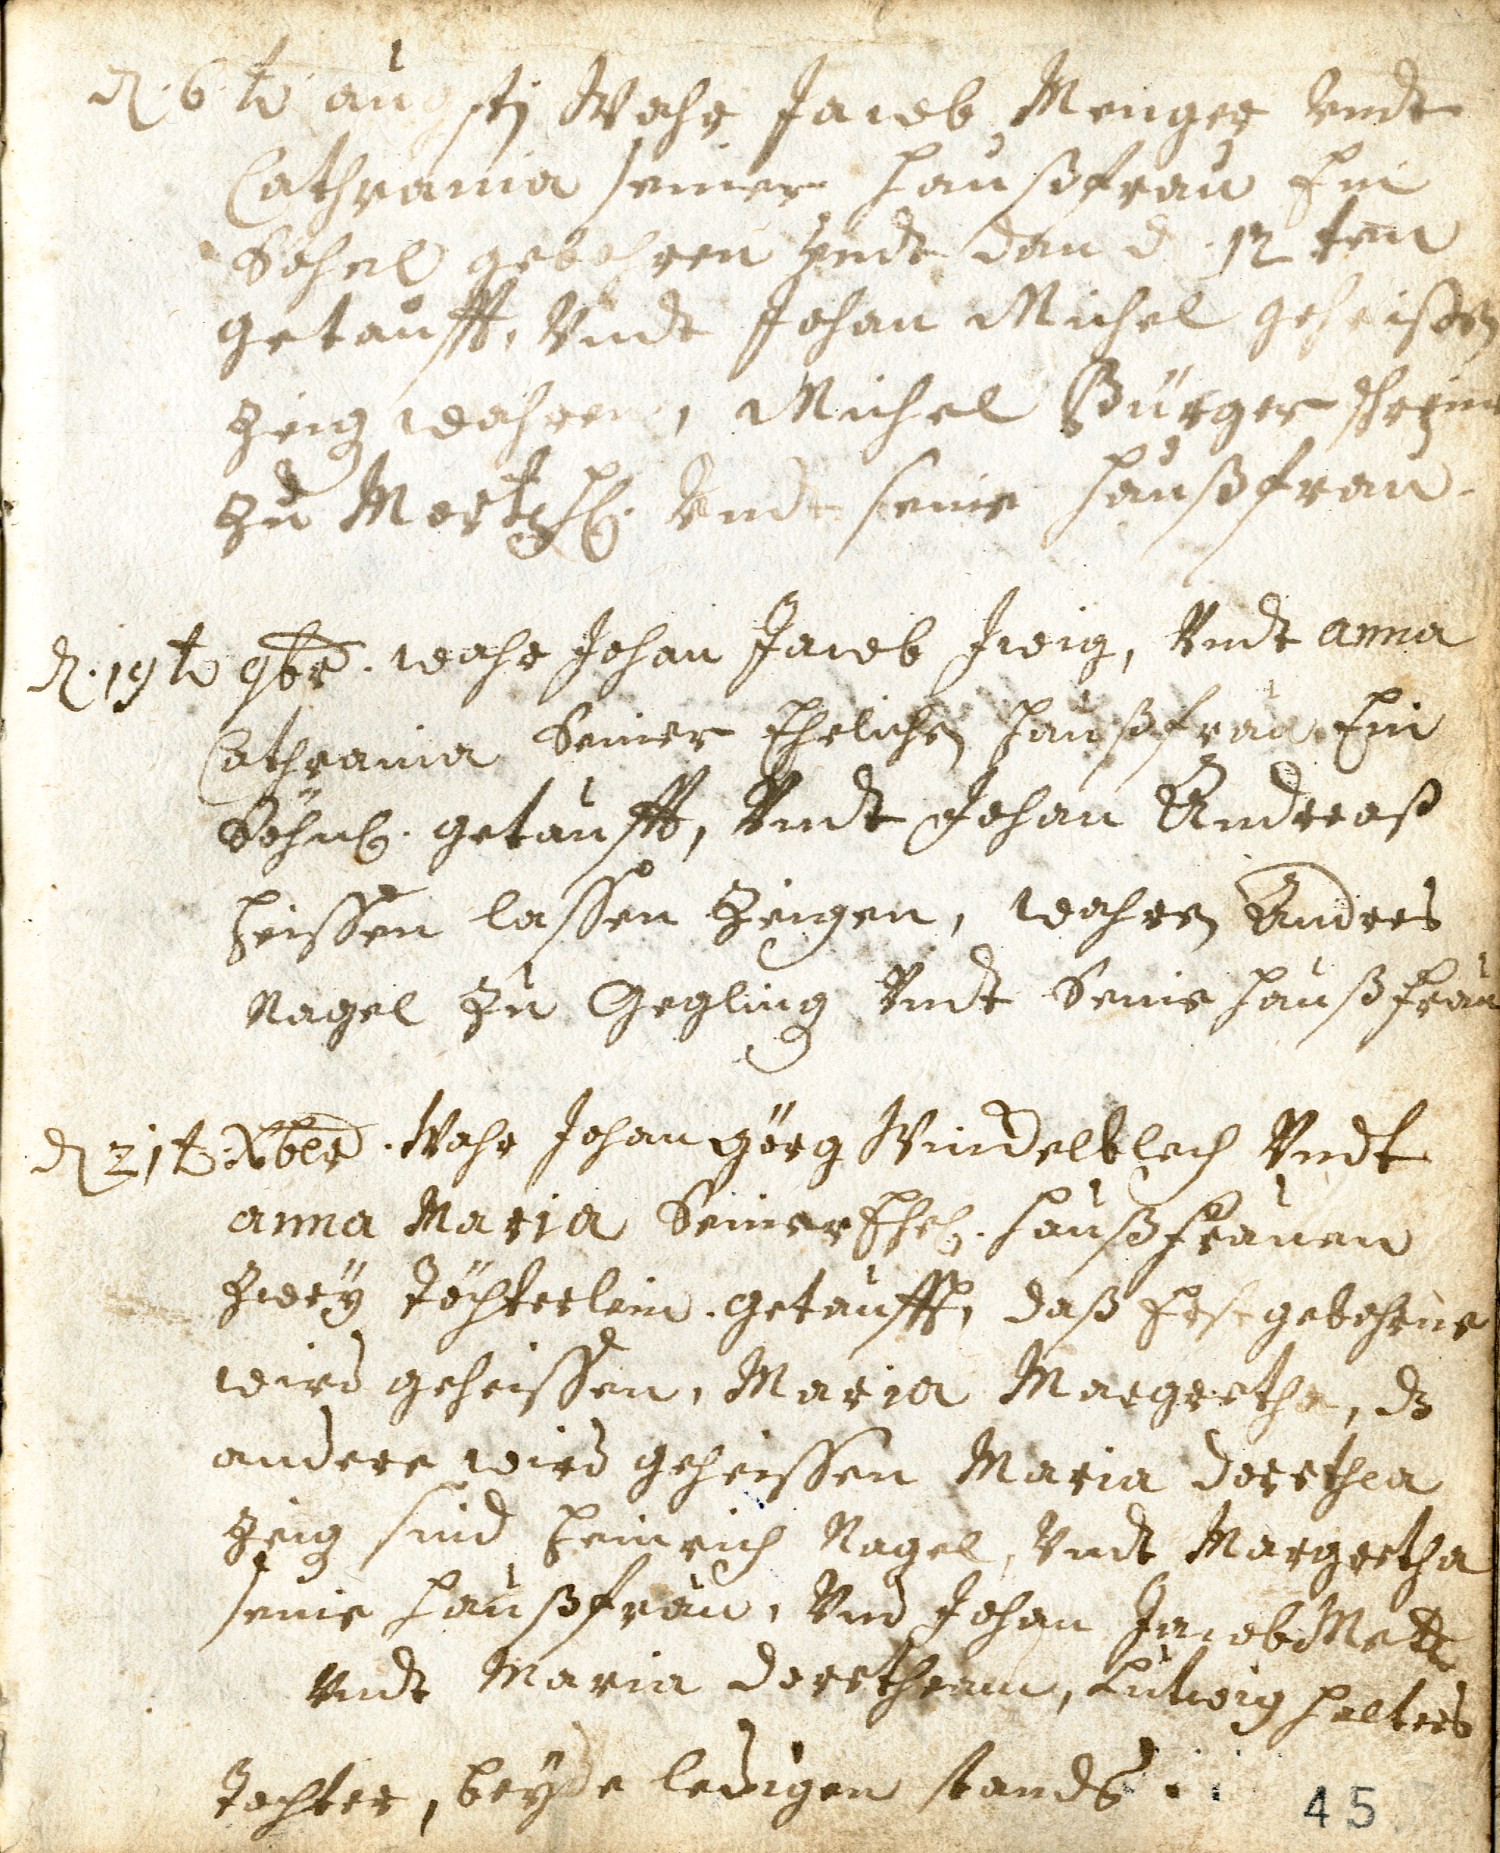 d. 6 t augstj Wahr Jacob Menges Vndt
Cathrania seiner haußfrau Ein
Sohnl gebohren Vndt dan d. 12 ten
getaufft, Vndt Johan Michel geheissen
Zeug wahren, Michel Bürger
Zu Vndt seine haußfrau.
d. 19 t 9br. wahr Johan Jacob Vndt anna
Cathrania Seiner Ehelichen haußfrau Ein
Söhnl. getaufft, Vndt Johan Andreaß
heissen lassen Zeugen, wahren Andres
Nagel zu Gegling Vndt Seine haußfrau
d 21 t Xbr. Wahr Johan görg Windelblech Vndt
anna Maria Seiner Ehel. haußfrauen
Zwey Töchterlein getaufft, daß Erstgebohrne
wird geheissen, Maria Margretha, dz
andere wird geheissen Maria dorethea
Zeug sind Heinrich Nagel, Vndt Margretha
seine haußfrau, Vnd Johan Jacob
Vndt Maria doretheam, Ludwig
Tochter, beyde ledigen stands.
45